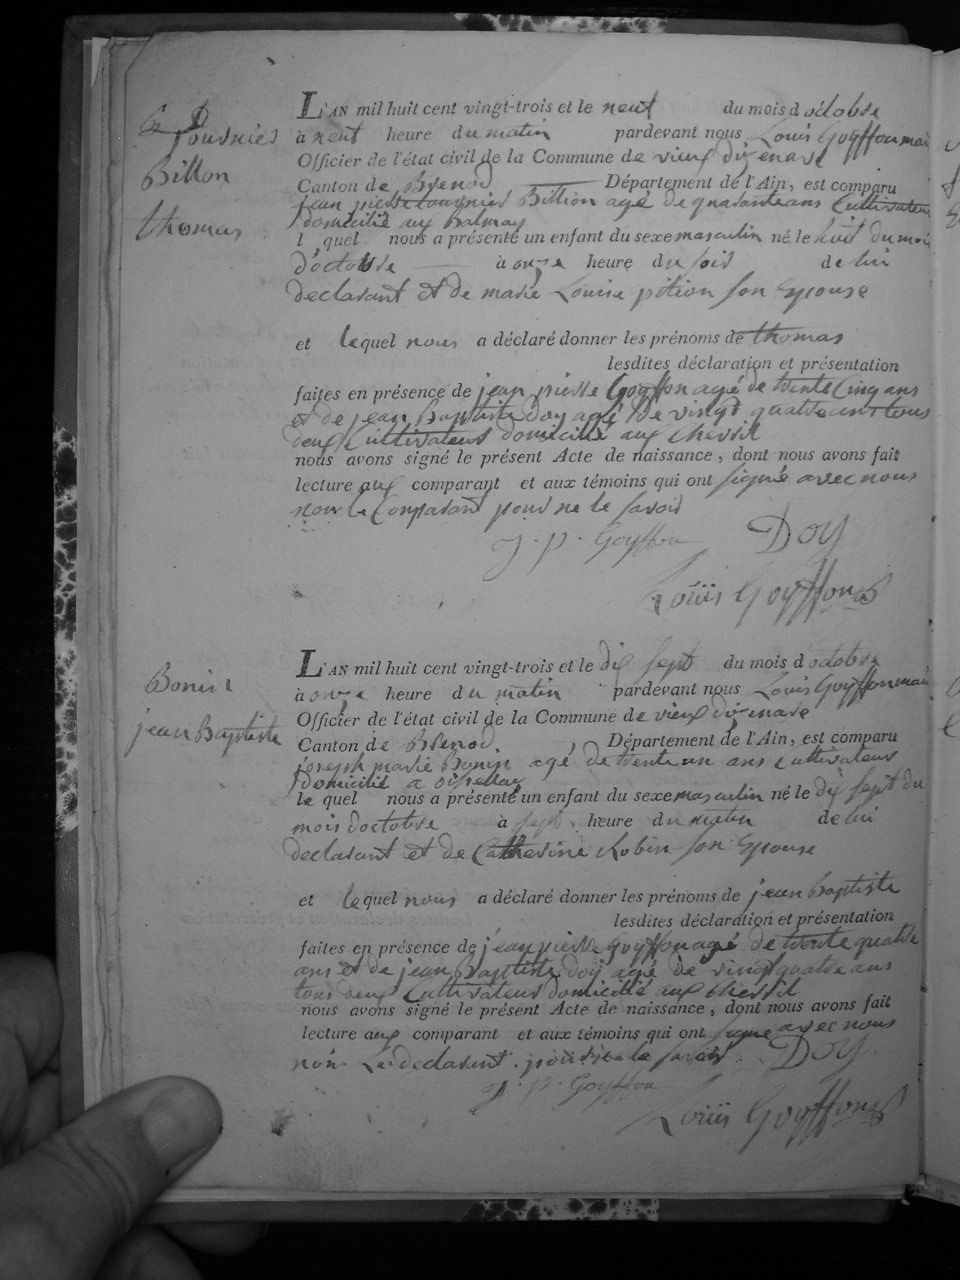 Fournier
Billon
thomas
L'AN mil huit cent vingt-trois et le neuf du mois d octobre
à neuf heure du matin pardevant nous Louis Goyffon mai
Officier de l'état civil de la Commune de vieux dizenave
Canton de Brenod Département de l'Ain, est comparu
jean pierre fournier Billion agé de quarante ans Cultivateur
domicilié aux Balmay
l quel nous a présenté un enfant du sexe masculin né le huit du moi
d'octobre à onze heure du soir de lui
declarant et de marie Louise pition son Epouse
et lequel nous a déclaré donner les prénoms de thomas
lesdites déclaration et présentation
faites en présence de jean pierre Goyffon agé de trente Cinq ans
et de jean Baptiste Doy agé de vingt quatre ans tous
deux Cultivateurs domicilié aux Chevril
nous avons signé le présent Acte de naissance, dont nous avons fait
lecture aux comparant et aux témoins qui ont signé avec nous
non le Conparant pour ne le savoir
J. P. Goyffon DOY
Louiis Goyffon
Bonin
jean Baptiste
L'AN mil huit cent vingt-trois et le dix sept du mois d octobre
à onze heure du matin pardevant nous Louis Goyffon mai
Officier de l'état civil de la Commune de vieux dizenave
Canton de Brenod. Département de l'Ain, est comparu
joseph marie Bonin agé de trente un ans Cultivateur
domicilié a
le quel nous a présenté un enfant du sexe masculin né le dix sept du
mois doctobre à sept heure du matin de lui
declarant et de Catherine Robin son Epouse
et lequel nous a déclaré donner les prénoms de jean Baptiste
lesdites déclaration et présentation
faites en présence de jean pierre Goyffon agé de trente quatre
ans et de jean Baptiste Doy agé de vingt quatre ans
tous deux Cultivateurs domicilié aux Chevril
nous avons signé le présent Acte de naissance, dont nous avons fait
lecture aux comparant et aux témoins qui ont signé avec nous
non Le declarant pour ne le savoir DOY
J. P. Goyffon
Louiis Goyffon